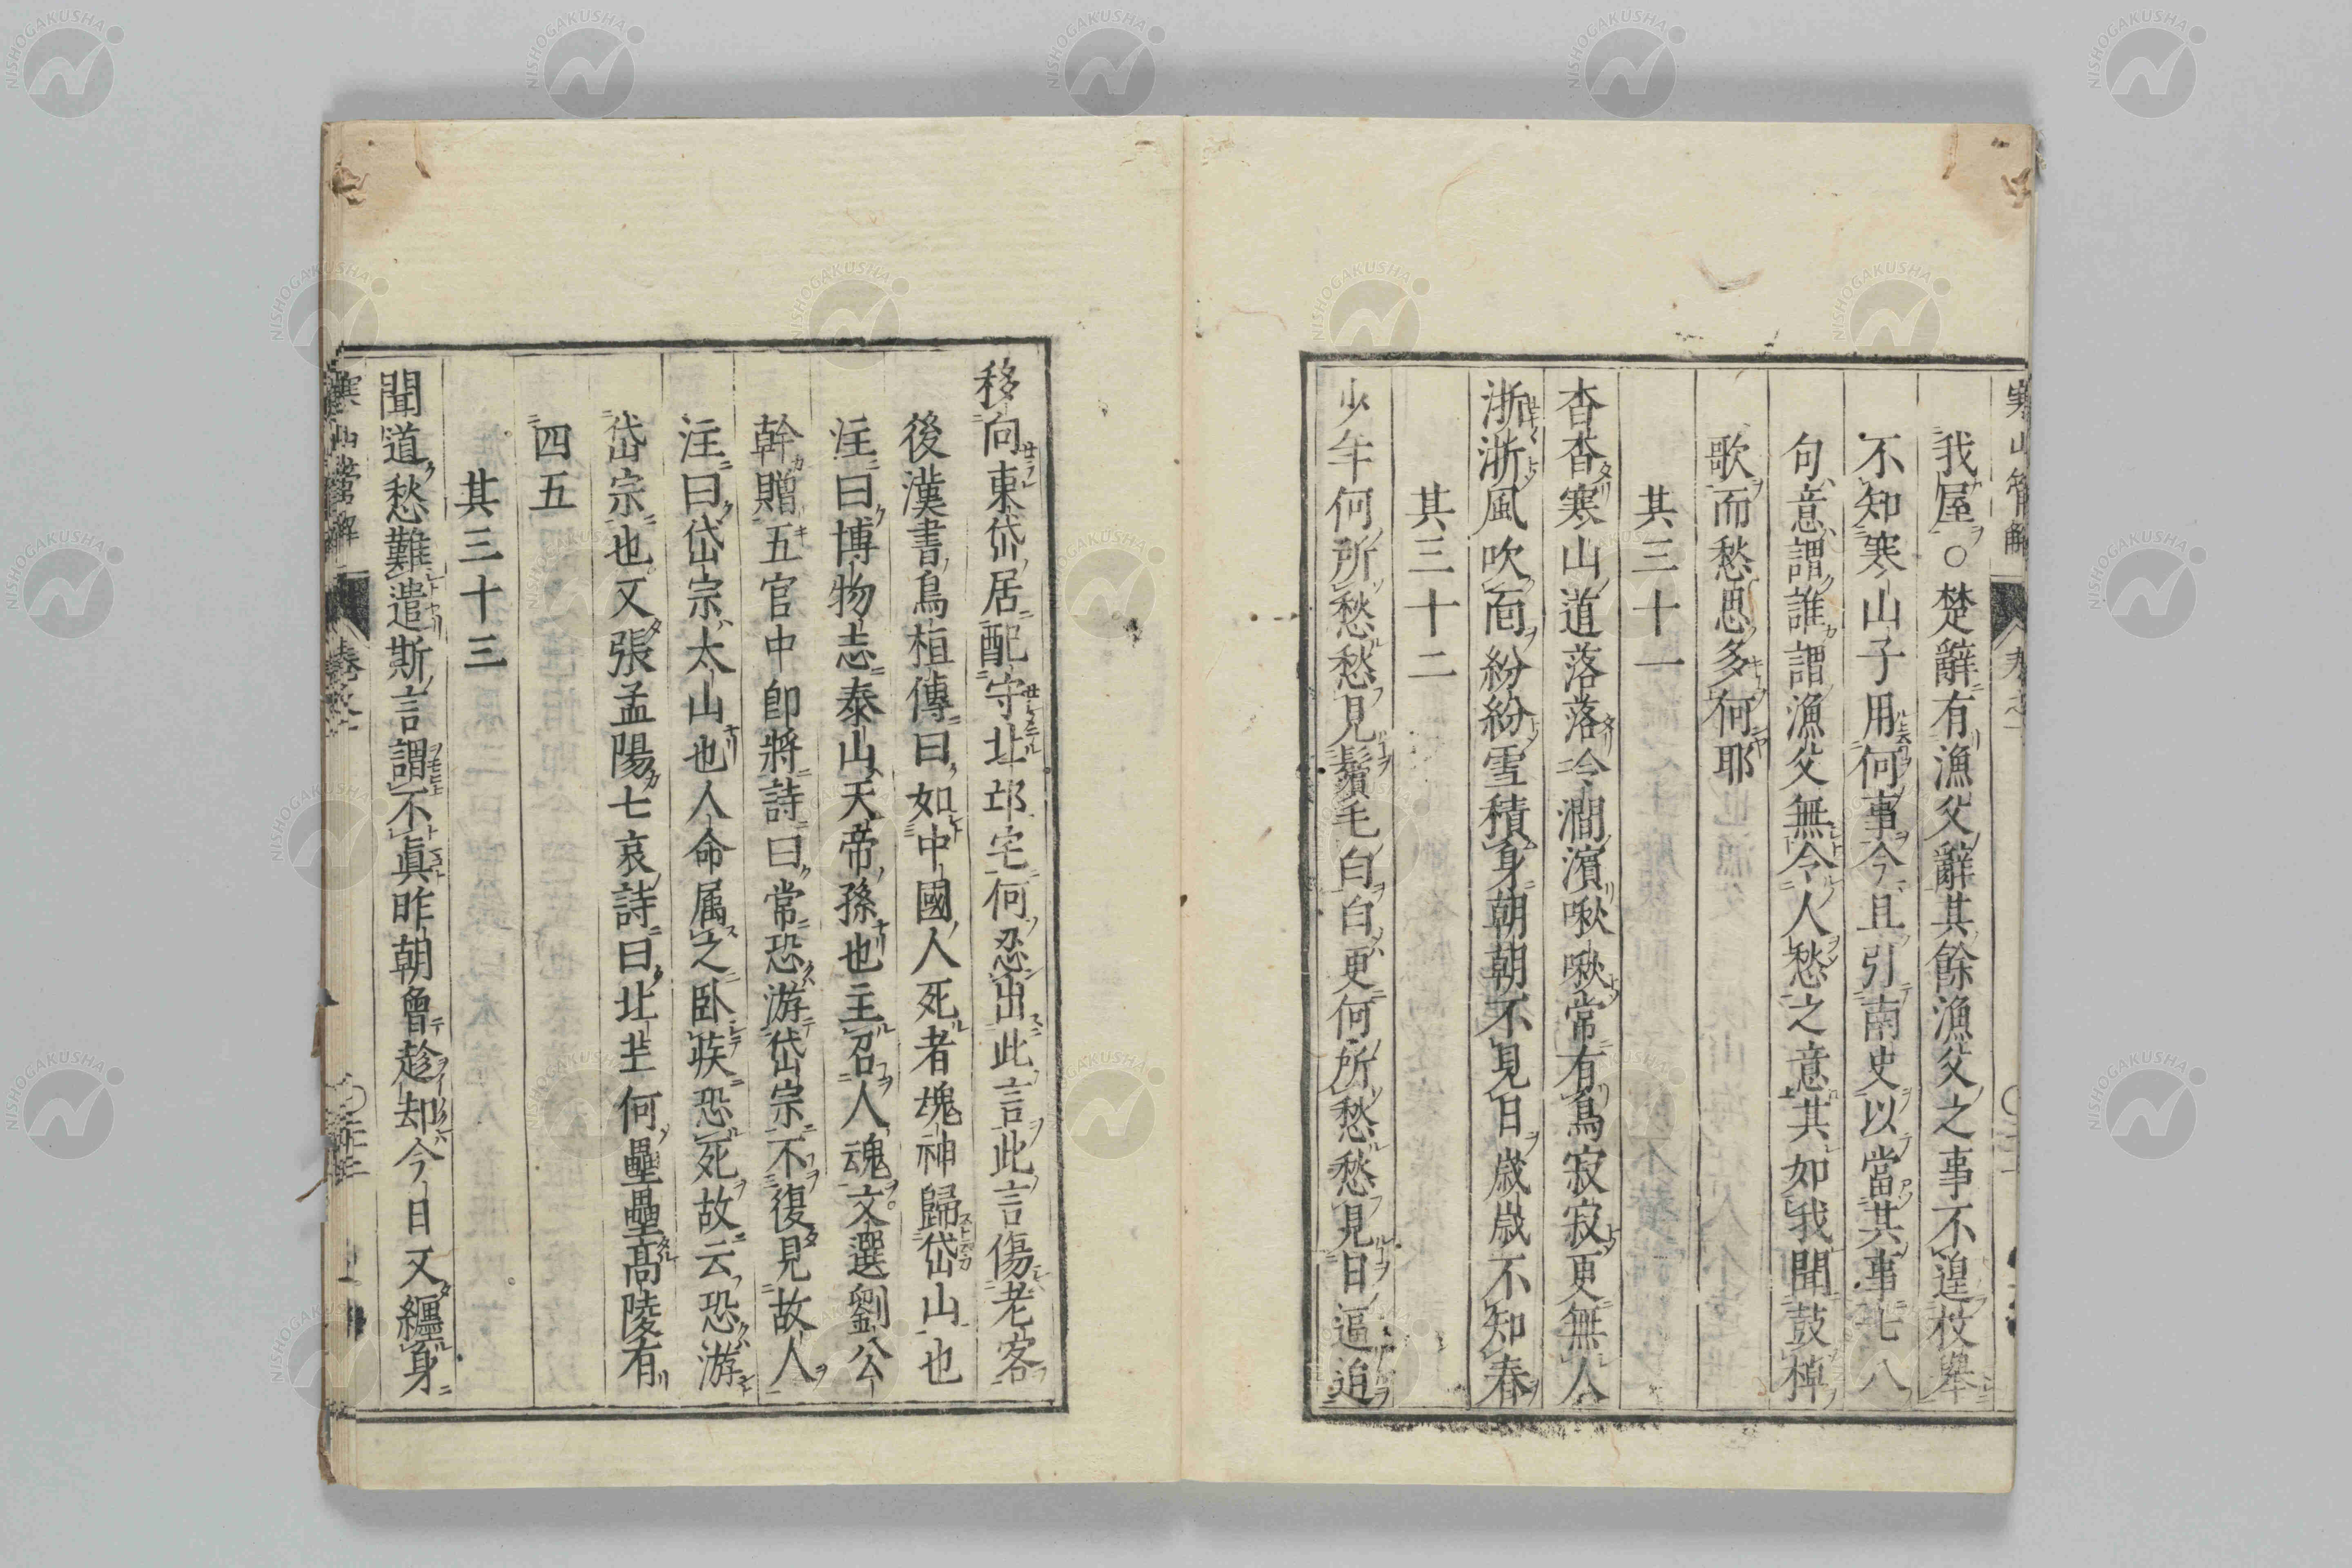 我屋○楚辭有漁父辭其餘漁父之事不遑枚舉
不知寒山子用何事今且引南史以當其事七八
句意謂誰謂漁父無令人愁之意其如我聞鼓棹
歌而愁思多何耶
其三十一
杳杳寒山道落落冷澗濱啾啾常有鳥寂寂更無人
淅淅風吹面紛紛雪積身朝朝不見日歲歲不知春
其三十二
少年何所愁愁見鬢毛白白更何所愁愁見日逼迫
移向東岱居配守北邙宅何忍出此言此言傷老客
後漢書烏桓傳曰如中國人死者魂神歸岱山也
注曰博物志泰山天帝孫也主召人魂文選劉公
幹贈五官中郎將詩曰常恐游岱宗不復見故人
注曰岱宗太山也人命属之卧疾恐死故云恐游
岱宗也又張孟陽七哀詩曰北芒何壘壘高陵有
四五
其三十三
聞道愁難遣斯言謂不眞昨朝曾趁却今日又纏身
寒山詩管解 卷之一
NISHOGAKUSHA